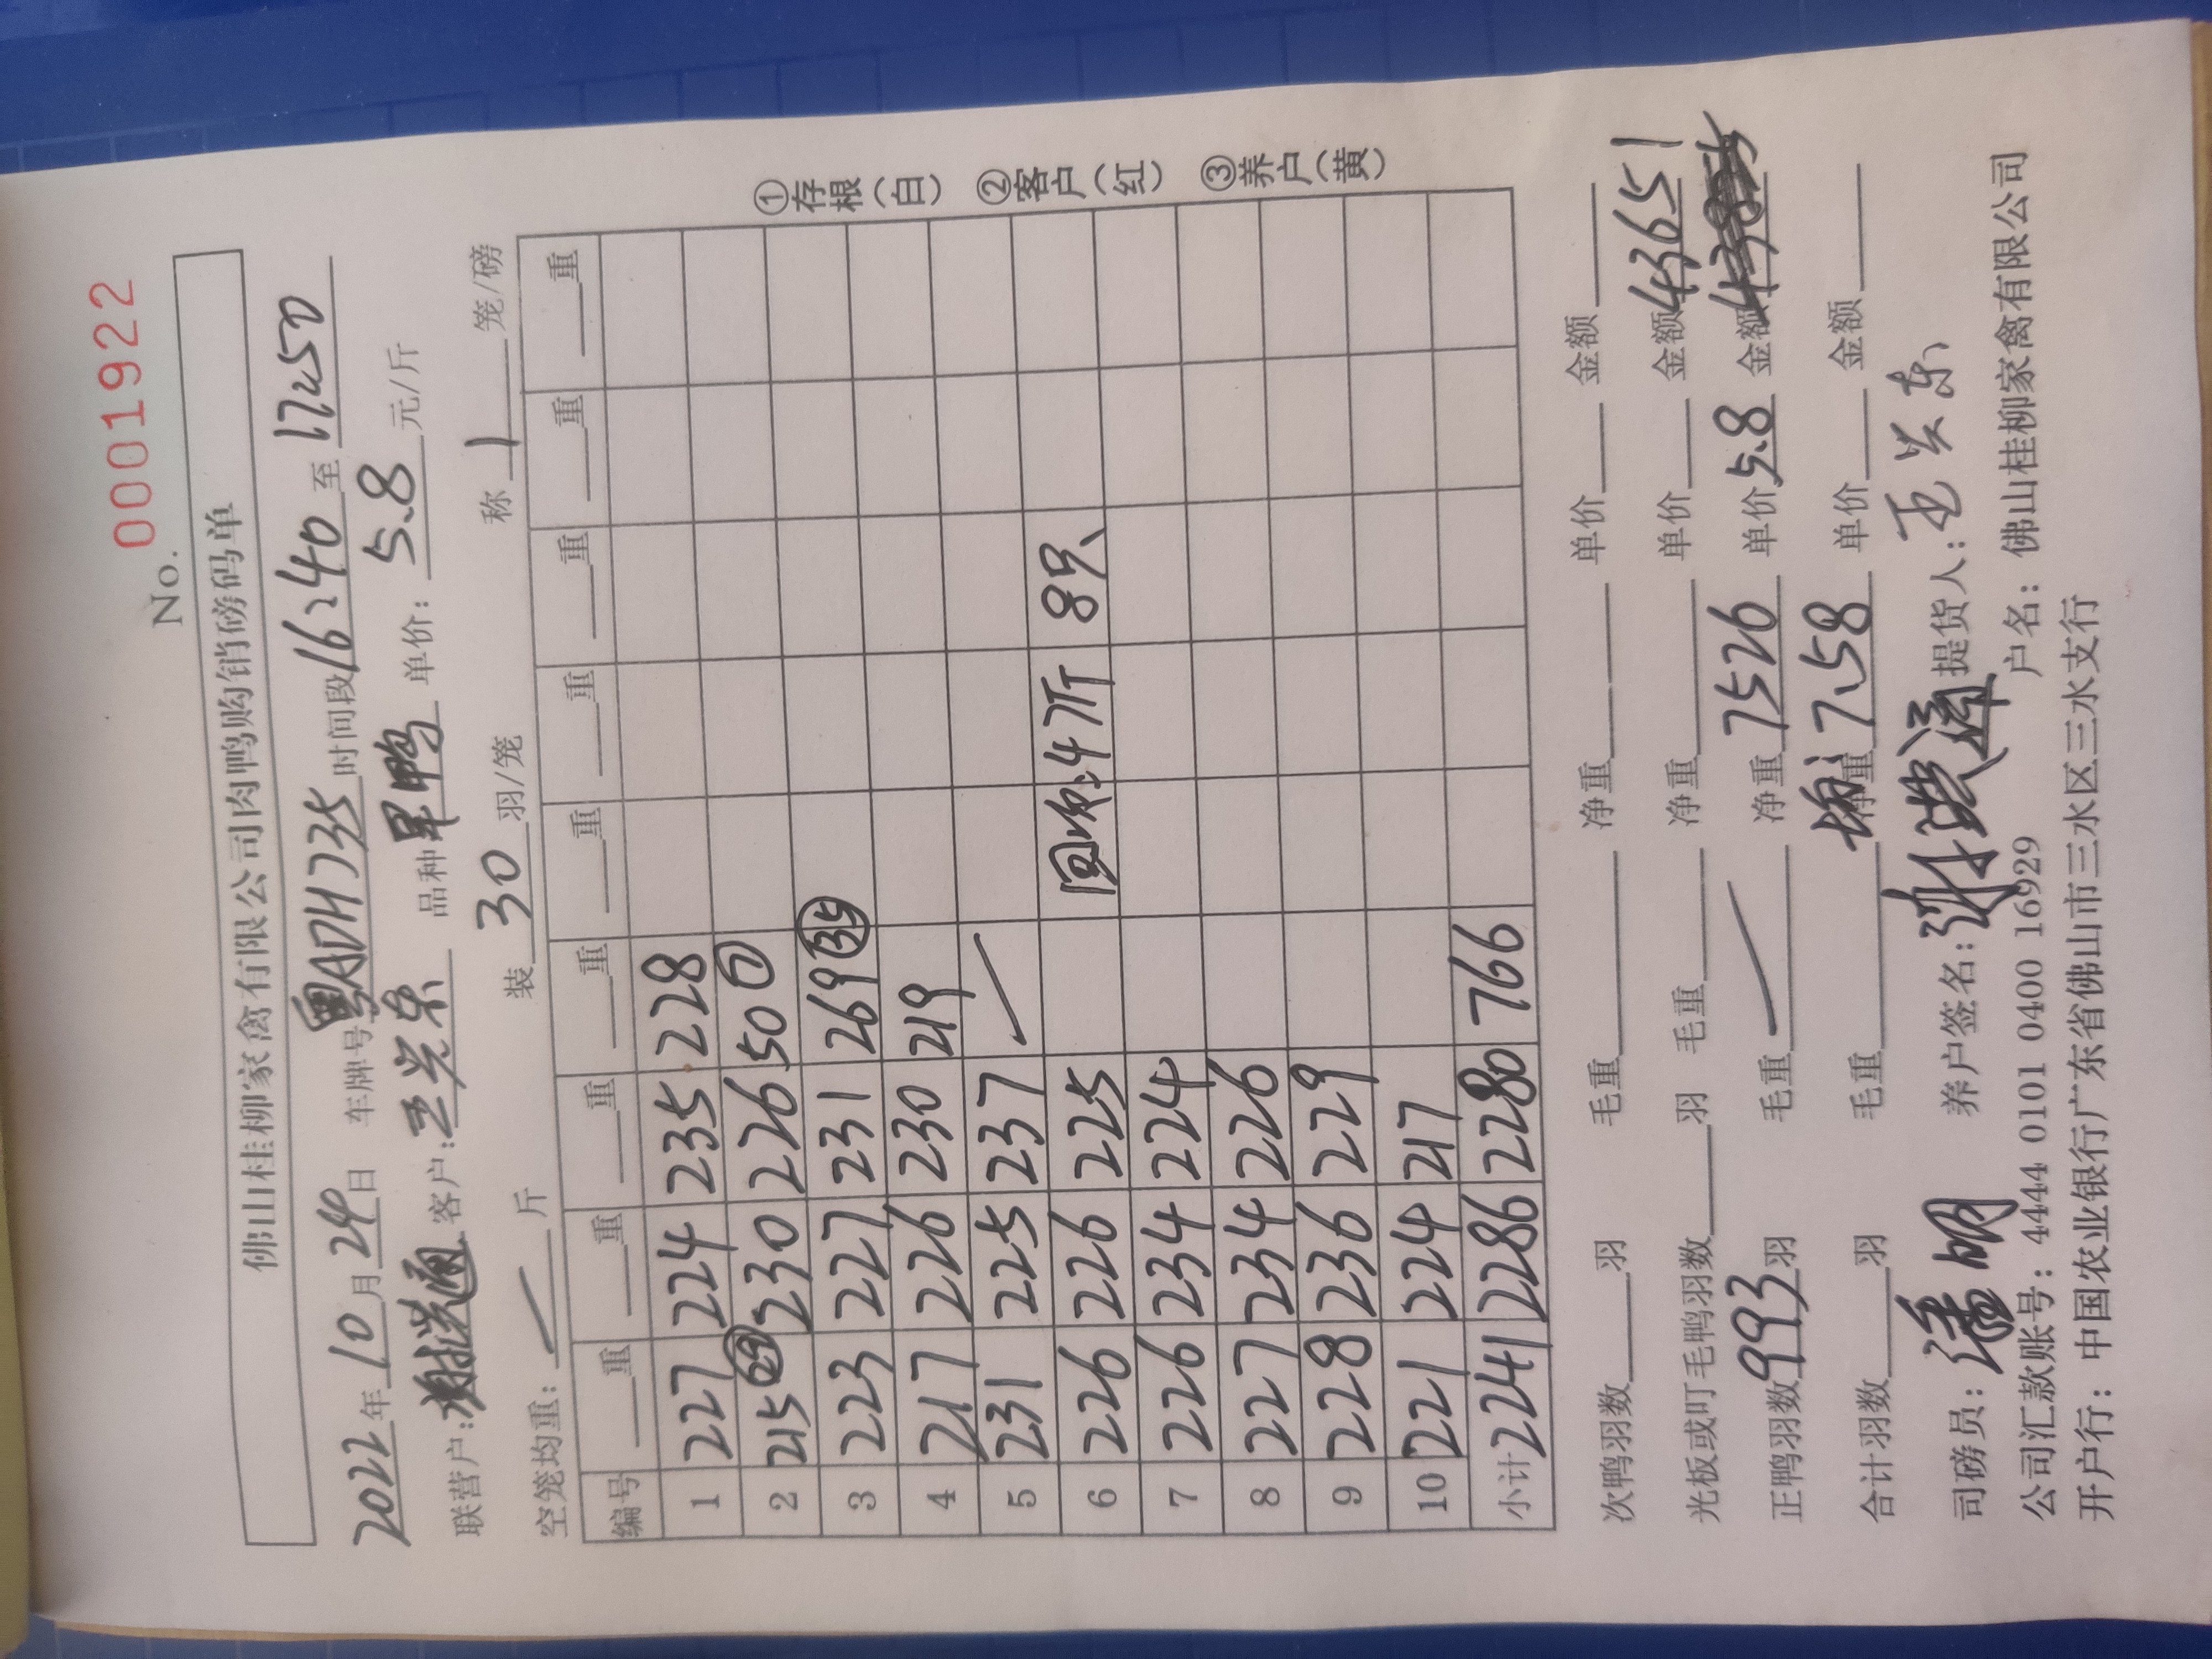 No. 0001922
佛山桂柳家禽有限公司肉鸭购销磅码单
2022年10月24日 车牌号粤ADH735 时间段16:40至17:50
联营户: 客户: 品种 单价: 5.8元/斤
空笼均重: 斤 装30羽/笼 称1笼/磅
编号 重 重 重 重 重 重 重 重 重
1 227 224 235 228
2 215 (29) 230 226 50 (7)
3 223 227 231 269 (35)
4 217 226 230 219
5 231 225 237
6 226 226 225 回收4斤 8只
7 226 234 224
8 227 234 226
9 228 236 229
10 221 224 217
小计 2241 2286 2280 766
①存根(白) ②客户(红) ③养户(黄)
次鸭羽数 羽 毛重 净重 单价 金额
光板或叮毛鸭羽数 羽 毛重 净重 单价 金额43651
正鸭羽数993羽 毛重 净重7526 单价5.8 金额
合计羽数 羽 毛重 净重7.58 单价 金额
司磅员:潘明 养户签名: 提货人:
公司汇款账号: 4444 0101 0400 16929 户名: 佛山桂柳家禽有限公司
开户行: 中国农业银行广东省佛山市三水区三水支行